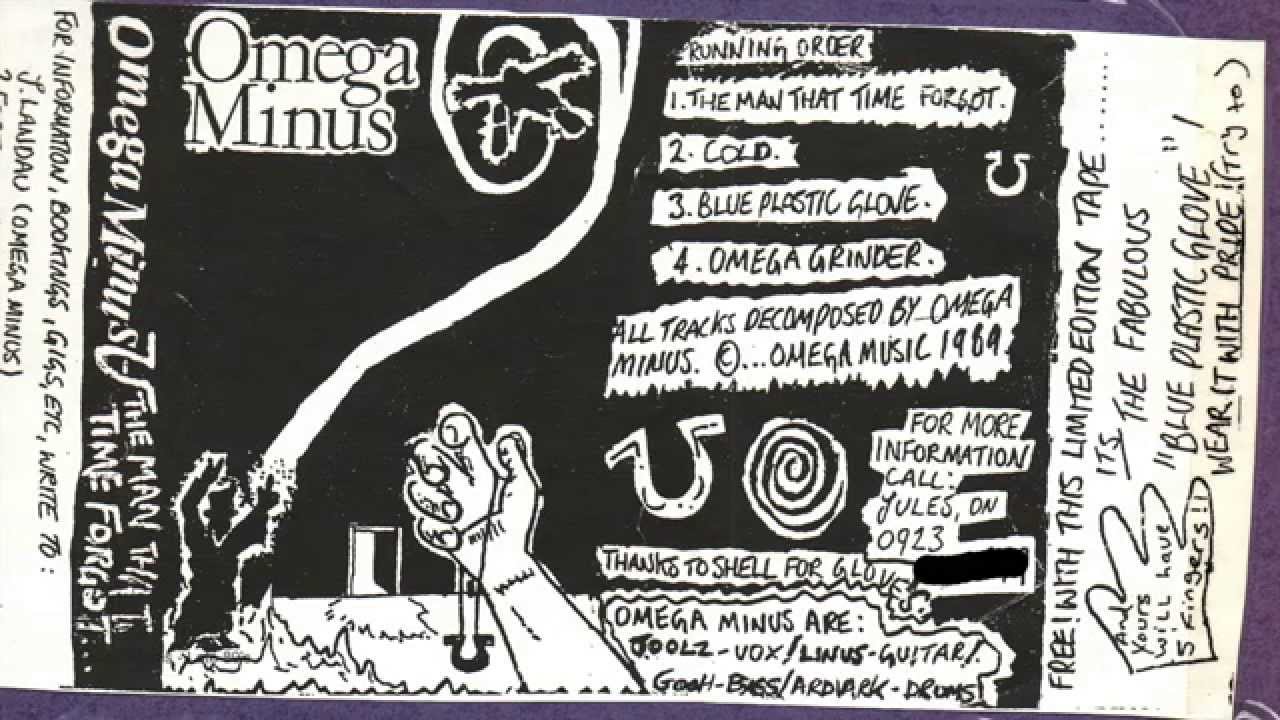 FOR INFORMATION, BOOKINGS, GIGS, ETC, WRITE TO:
J. LANDAU (OMEGA MINUS)
Omega Minus
THE MAN THAT
TIME FORGOT...
Omega
Minus
RUNNING ORDER
1. THE MAN THAT TIME FORGOT.
2. COLD.
3. BLUE PLASTIC GLOVE.
4. OMEGA GRINDER.
ALL TRACKS DECOMPOSED BY OMEGA
MINUS. ©...OMEGA MUSIC 1989
FOR MORE
INFORMATION
CALL:
JULES, ON
0923
THANKS TO SHELL FOR GLOVES
OMEGA MINUS ARE:
JOOLZ-VOX/LINUS-GUITAR/
GOOH-BASS/ARDVARK-DRUMS
FREE! WITH THIS LIMITED EDITION TAPE.......
ITS THE FABULOUS
"BLUE PLASTIC GLOVE"!
WEAR IT WITH PRIDE! (Try to)
And
Yours
will have
5 Fingers!!